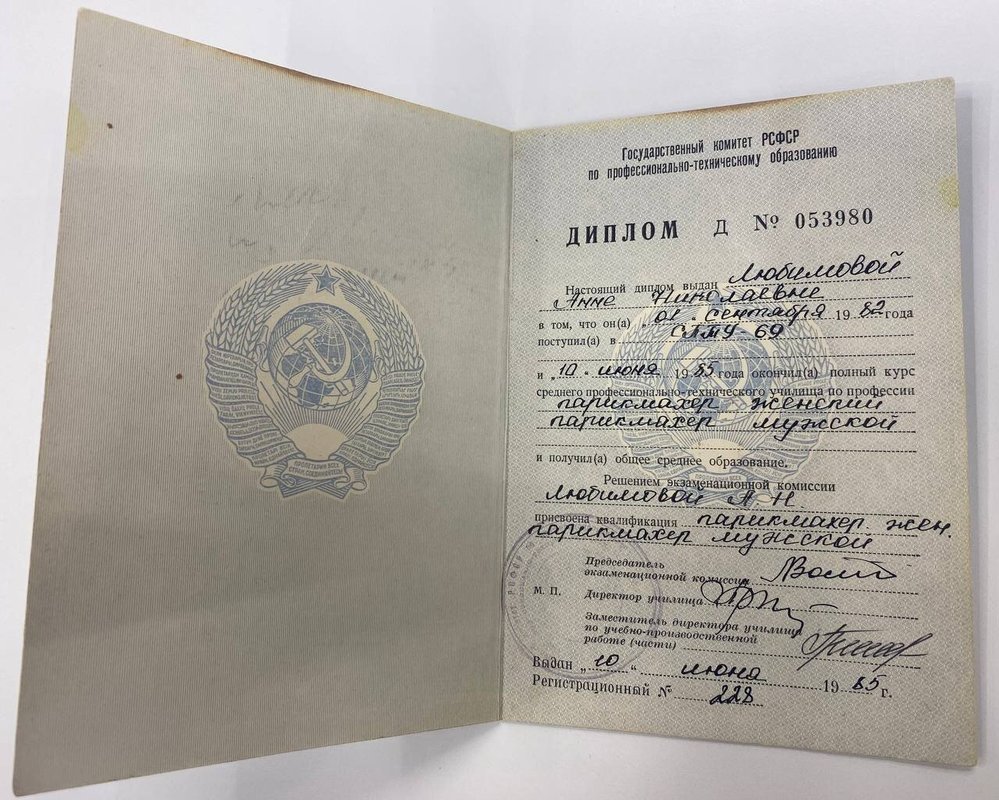 ПРОЛЕТАРИИ ВСЕХ
СТРАН, СОЕДИНЯЙТЕСЬ!
Государственный комитет РСФСР
по профессионально-техническому образованию
ДИПЛОМ Д № 053980
Настоящий диплом выдан Любимовой
Анне Николаевне
в том, что он(а) „01„ сентября 1982 года
поступил(а) в СПТУ 69
и „10„ июня 1985 года окончил(а) полный курс
среднего профессионально-технического училища по профессии
парикмахер женский
парикмахер мужской
и получил(а) общее среднее образование.
Решением экзаменационной комиссии
Любимовой А. Н.
присвоена квалификация парикмахер жен.
парикмахер мужской
Председатель
экзаменационной комиссии
М. П. Директор училища
Заместитель директора училища
по учебно-производственной
работе (части)
Выдан „10“ июня 1985 г.
Регистрационный № 228